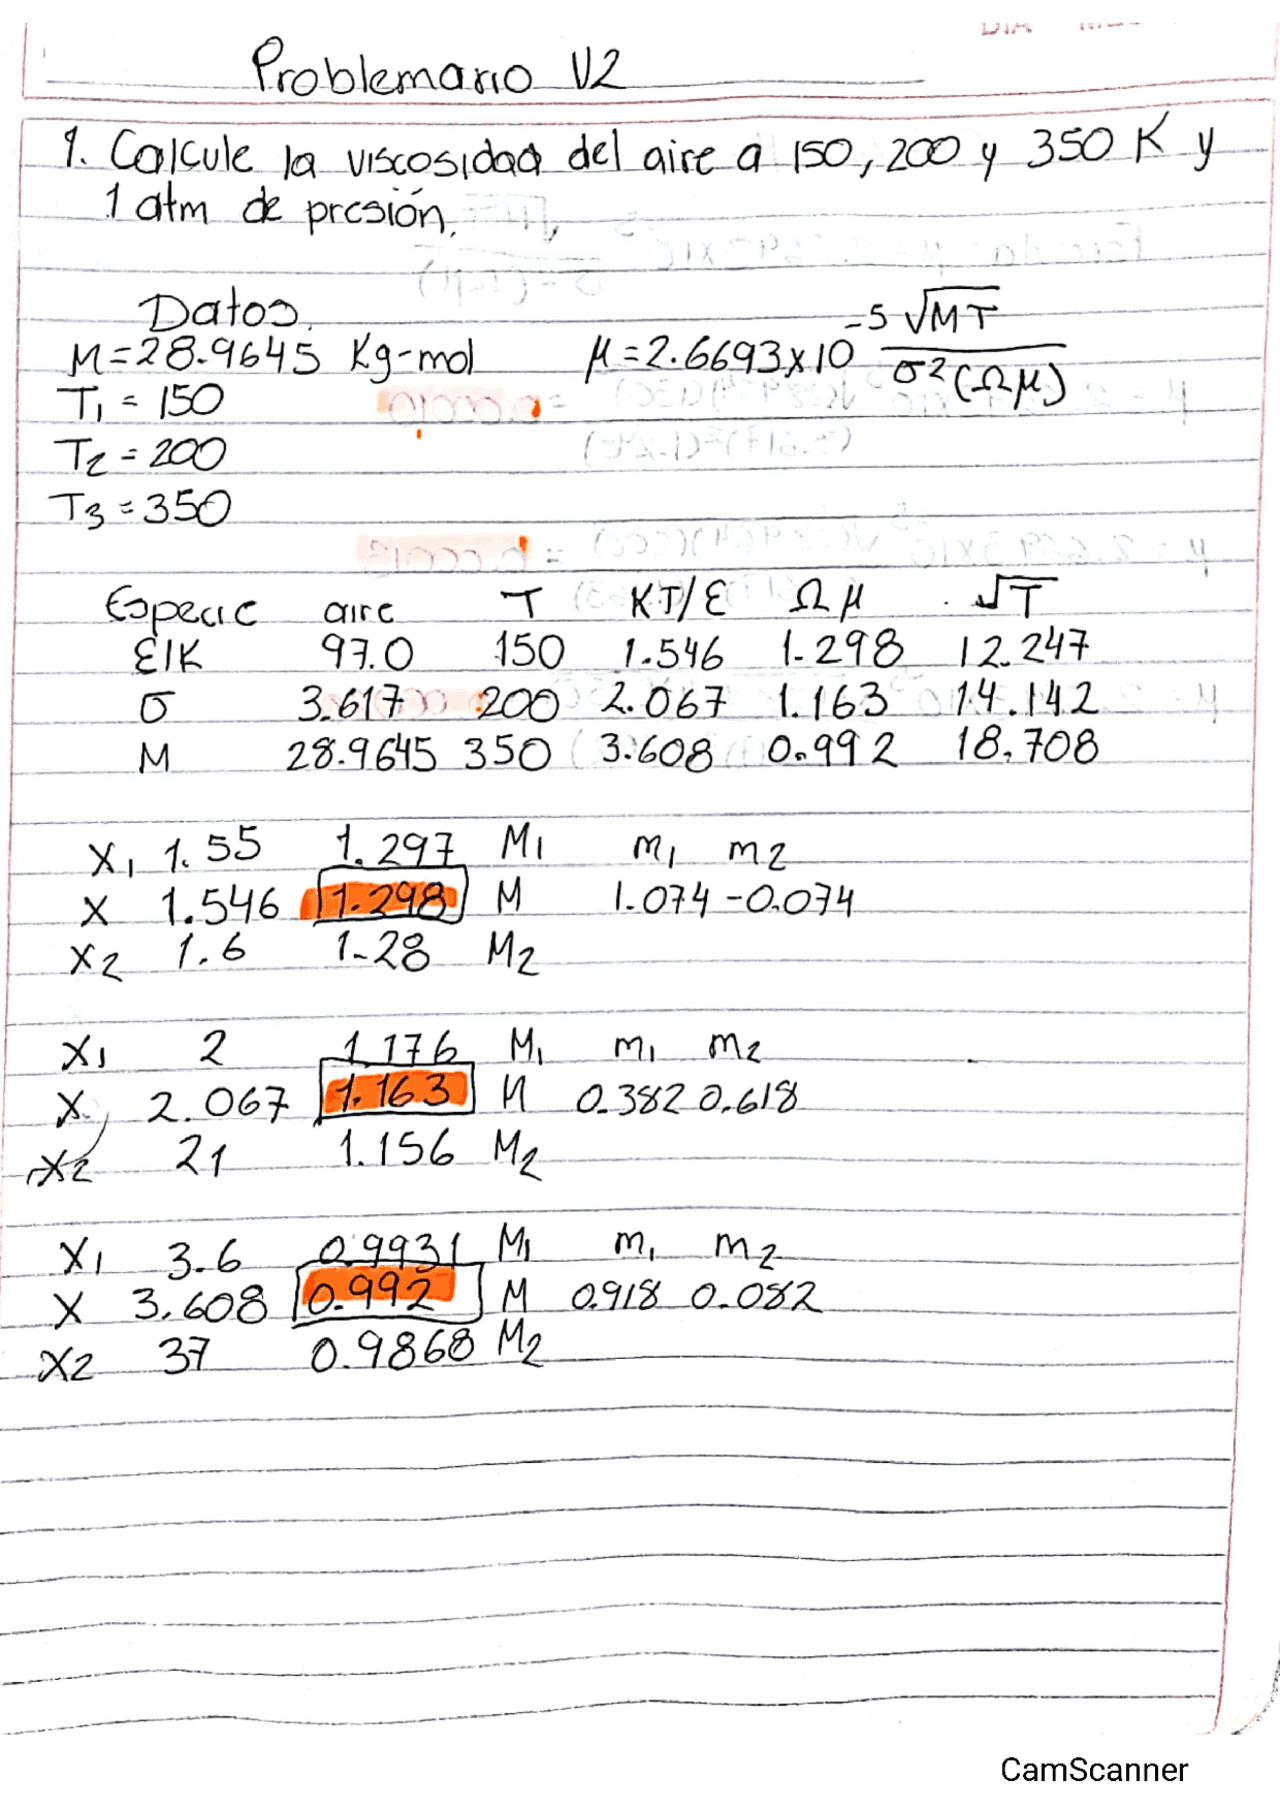 DIA
Problemario U2
1. Calcule la viscosidad del aire a 150, 200 y 350 K y
1 atm de presión.
Datos.
M=28.9645 Kg-mol μ=2.6693x10^-5 √MT / σ²(Ωμ)
T1 = 150
T2 = 200
T3 = 350
Especie aire T KT/ε Ωμ √T
ε/K 97.0 150 1.546 1.298 12.247
σ 3.617 200 2.067 1.163 14.142
M 28.9645 350 3.608 0.992 18.708
X1 1.55 1.297 M1 m1 m2
X 1.546 1.298 M 1.074 -0.074
X2 1.6 1.28 M2
X1 2 1.176 M1 m1 m2
X 2.067 1.163 M 0.382 0.618
X2 21 1.156 M2
X1 3.6 0.9931 M1 m1 m2
X 3.608 0.992 M 0.918 0.082
X2 37 0.9868 M2
CamScanner